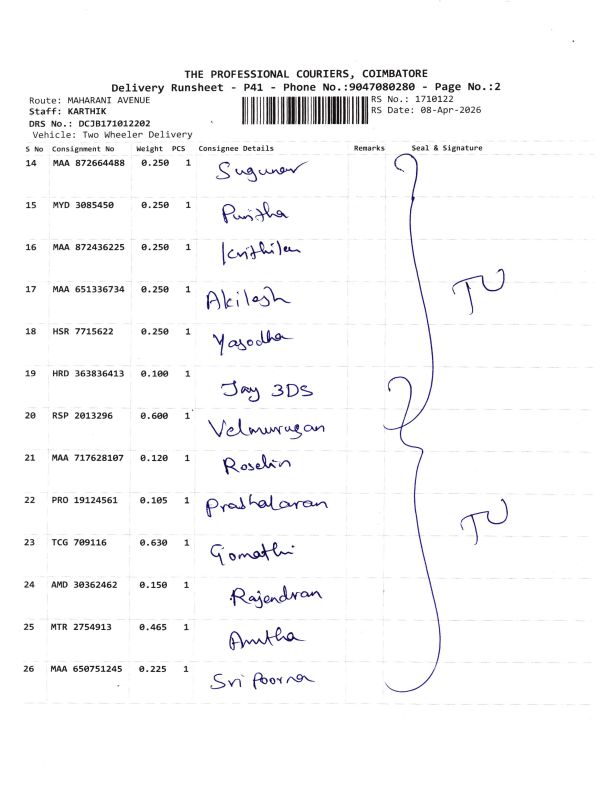 THE PROFESSIONAL COURIERS, COIMBATORE
Delivery Runsheet - P41 - Phone No.:9047080280 - Page No.:2
Route: MAHARANI AVENUE
RS No.: 1710122
Staff: KARTHIK
RS Date: 08-Apr-2026
DRS No.: DCJB171012202
Vehicle: Two Wheeler Delivery
S No Consignment No Weight PCS Consignee Details Remarks Seal & Signature
14 MAA 872664488 0.250 1
15 MYD 3085450 0.250 1 Punitha
16 MAA 872436225 0.250 1
17 MAA 651336734 0.250 1 Akilesh
18 HSR 7715622 0.250 1 Yasodha
19 HRD 363836413 0.100 1 Jay 3DS
20 RSP 2013296 0.600 1 Velmurugan
21 MAA 717628107 0.120 1 Roselin
22 PRO 19124561 0.105 1
23 TCG 709116 0.630 1 Gomathi
24 AMD 30362462 0.150 1 Rajendran
25 MTR 2754913 0.465 1
26 MAA 650751245 0.225 1 Sri Poorna